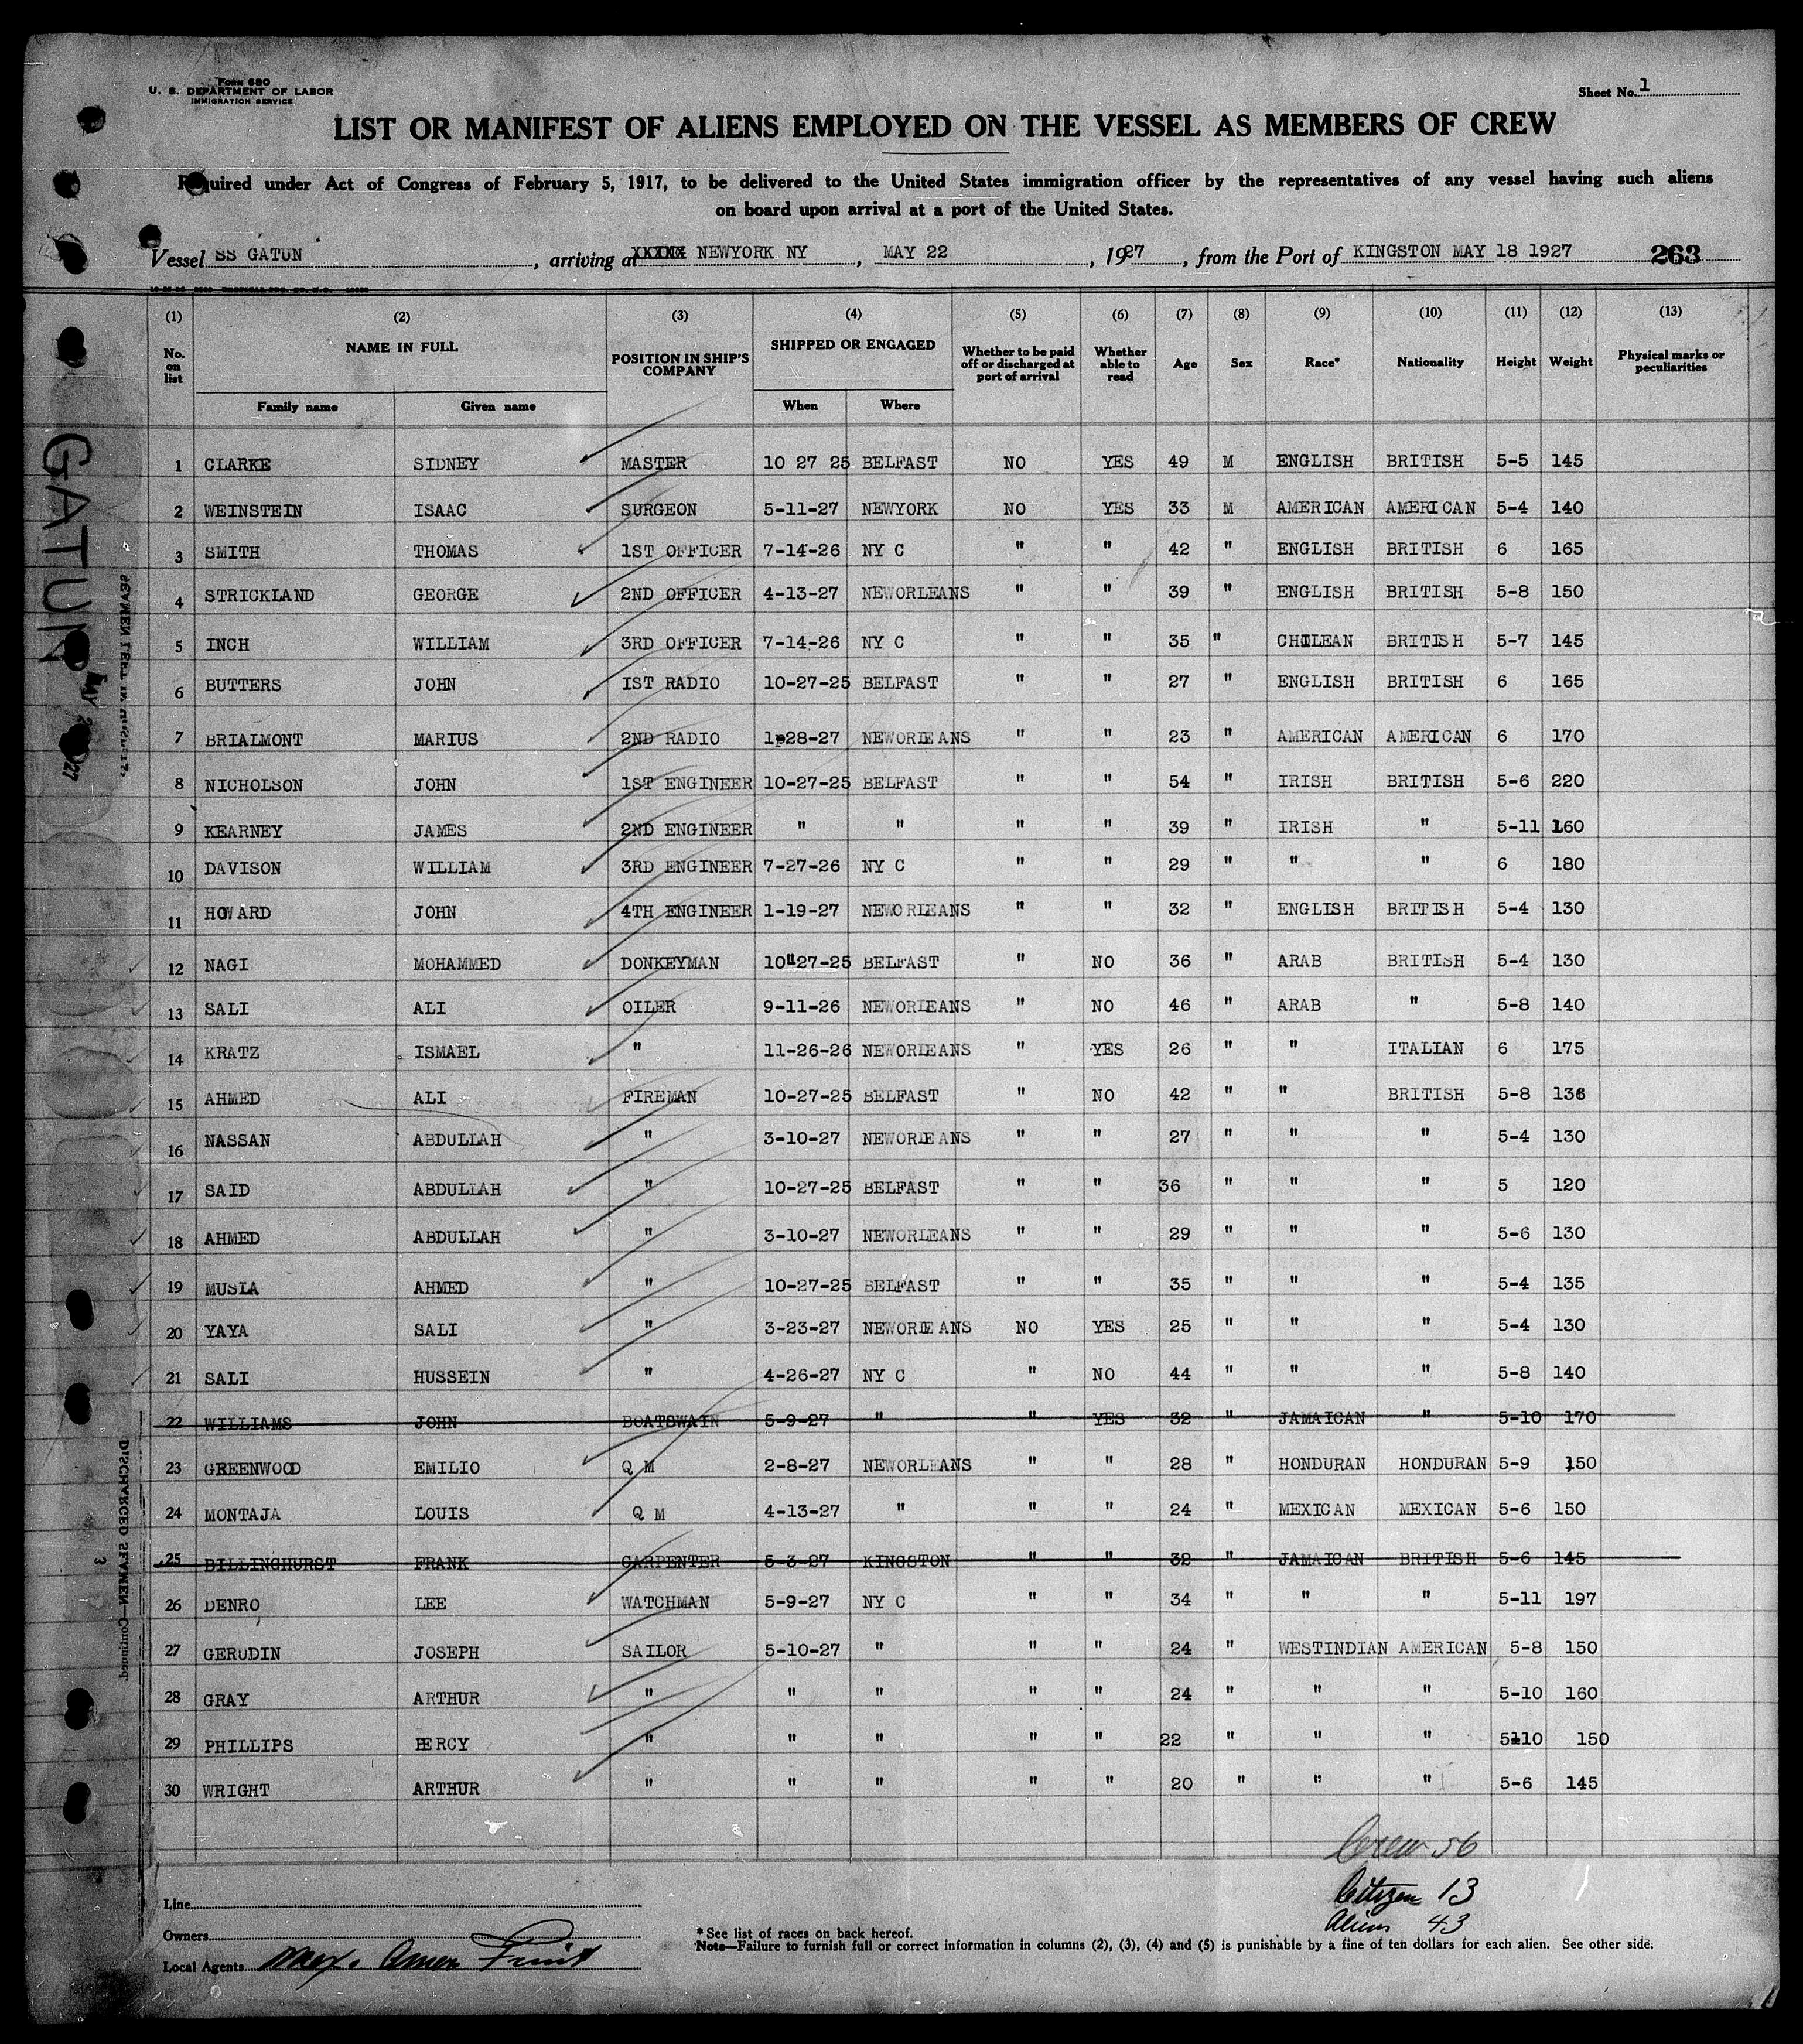 Form 680
U. S. DEPARTMENT OF LABOR
IMMIGRATION SERVICE
Sheet No. 1
LIST OR MANIFEST OF ALIENS EMPLOYED ON THE VESSEL AS MEMBERS OF CREW
Required under Act of Congress of February 5, 1917, to be delivered to the United States immigration officer by the representatives of any vessel having such aliens
on board upon arrival at a port of the United States.
Vessel SS GATUN , arriving at XXXXX NEWYORK NY , MAY 22 , 1927 , from the Port of KINGSTON MAY 18 1927 263
(1) (2) (3) (4) (5) (6) (7) (8) (9) (10) (11) (12) (13)
No. on list NAME IN FULL POSITION IN SHIP'S COMPANY SHIPPED OR ENGAGED Whether to be paid off or discharged at port of arrival Whether able to read Age Sex Race* Nationality Height Weight Physical marks or peculiarities
Family name Given name When Where
1 CLARKE SIDNEY MASTER 10 27 25 BELFAST NO YES 49 M ENGLISH BRITISH 5-5 145
2 WEINSTEIN ISAAC SURGEON 5-11-27 NEWYORK NO YES 33 M AMERICAN AMERICAN 5-4 140
3 SMITH THOMAS 1ST OFFICER 7-14-26 NY C " " 42 " ENGLISH BRITISH 6 165
4 STRICKLAND GEORGE 2ND OFFICER 4-13-27 NEWORLEANS " " 39 " ENGLISH BRITISH 5-8 150
5 INCH WILLIAM 3RD OFFICER 7-14-26 NY C " " 35 " CHILEAN BRITISH 5-7 145
6 BUTTERS JOHN IST RADIO 10-27-25 BELFAST " " 27 " ENGLISH BRITISH 6 165
7 BRIALMONT MARIUS 2ND RADIO 1-28-27 NEWORLEANS " " 23 " AMERICAN AMERICAN 6 170
8 NICHOLSON JOHN 1ST ENGINEER 10-27-25 BELFAST " " 54 " IRISH BRITISH 5-6 220
9 KEARNEY JAMES 2ND ENGINEER " " " " 39 " IRISH " 5-11 160
10 DAVISON WILLIAM 3RD ENGINEER 7-27-26 NY C " " 29 " " " 6 180
11 HOWARD JOHN 4TH ENGINEER 1-19-27 NEWORLEANS " " 32 " ENGLISH BRITISH 5-4 130
12 NAGI MOHAMMED DONKEYMAN 10"27-25 BELFAST " NO 36 " ARAB BRITISH 5-4 130
13 SALI ALI OILER 9-11-26 NEWORLEANS " NO 46 " ARAB " 5-8 140
14 KRATZ ISMAEL " 11-26-26 NEWORLEANS " YES 26 " " ITALIAN 6 175
15 AHMED ALI FIREMAN 10-27-25 BELFAST " NO 42 " " BRITISH 5-8 136
16 NASSAN ABDULLAH " 3-10-27 NEWORLEANS " " 27 " " " 5-4 130
17 SAID ABDULLAH " 10-27-25 BELFAST " " 36 " " " 5 120
18 AHMED ABDULLAH " 3-10-27 NEWORLEANS " " 29 " " " 5-6 130
19 MUSLA AHMED " 10-27-25 BELFAST " " 35 " " " 5-4 135
20 YAYA SALI " 3-23-27 NEWORLEANS NO YES 25 " " " 5-4 130
21 SALI HUSSEIN " 4-26-27 NY C " NO 44 " " " 5-8 140
22 WILLIAMS JOHN BOATSWAIN 5-9-27 " " YES 32 " JAMAICAN " 5-10 170
23 GREENWOOD EMILIO Q M 2-8-27 NEWORLEANS " " 28 " HONDURAN HONDURAN 5-9 150
24 MONTAJA LOUIS Q M 4-13-27 " " " 24 " MEXICAN MEXICAN 5-6 150
25 BILLINGHURST FRANK CARPENTER 5-3-27 KINGSTON " " 32 " JAMAICAN BRITISH 5-6 145
26 DENRO LEE WATCHMAN 5-9-27 NY C " " 34 " " " 5-11 197
27 GERUDIN JOSEPH SAILOR 5-10-27 " " " 24 " WESTINDIAN AMERICAN 5-8 150
28 GRAY ARTHUR " " " " " 24 " " " 5-10 160
29 PHILLIPS PERCY " " " " " 22 " " " 5-10 150
30 WRIGHT ARTHUR " " " " " 20 " " " 5-6 145
GATUN
MAY 2 27
DISCHARGED SEAMEN—Continued
3
Crew 56
Citizen 13
Aliens 43
Line
Owners
Local Agents Amer Fruit
* See list of races on back hereof.
Note—Failure to furnish full or correct information in columns (2), (3), (4) and (5) is punishable by a fine of ten dollars for each alien. See other side.